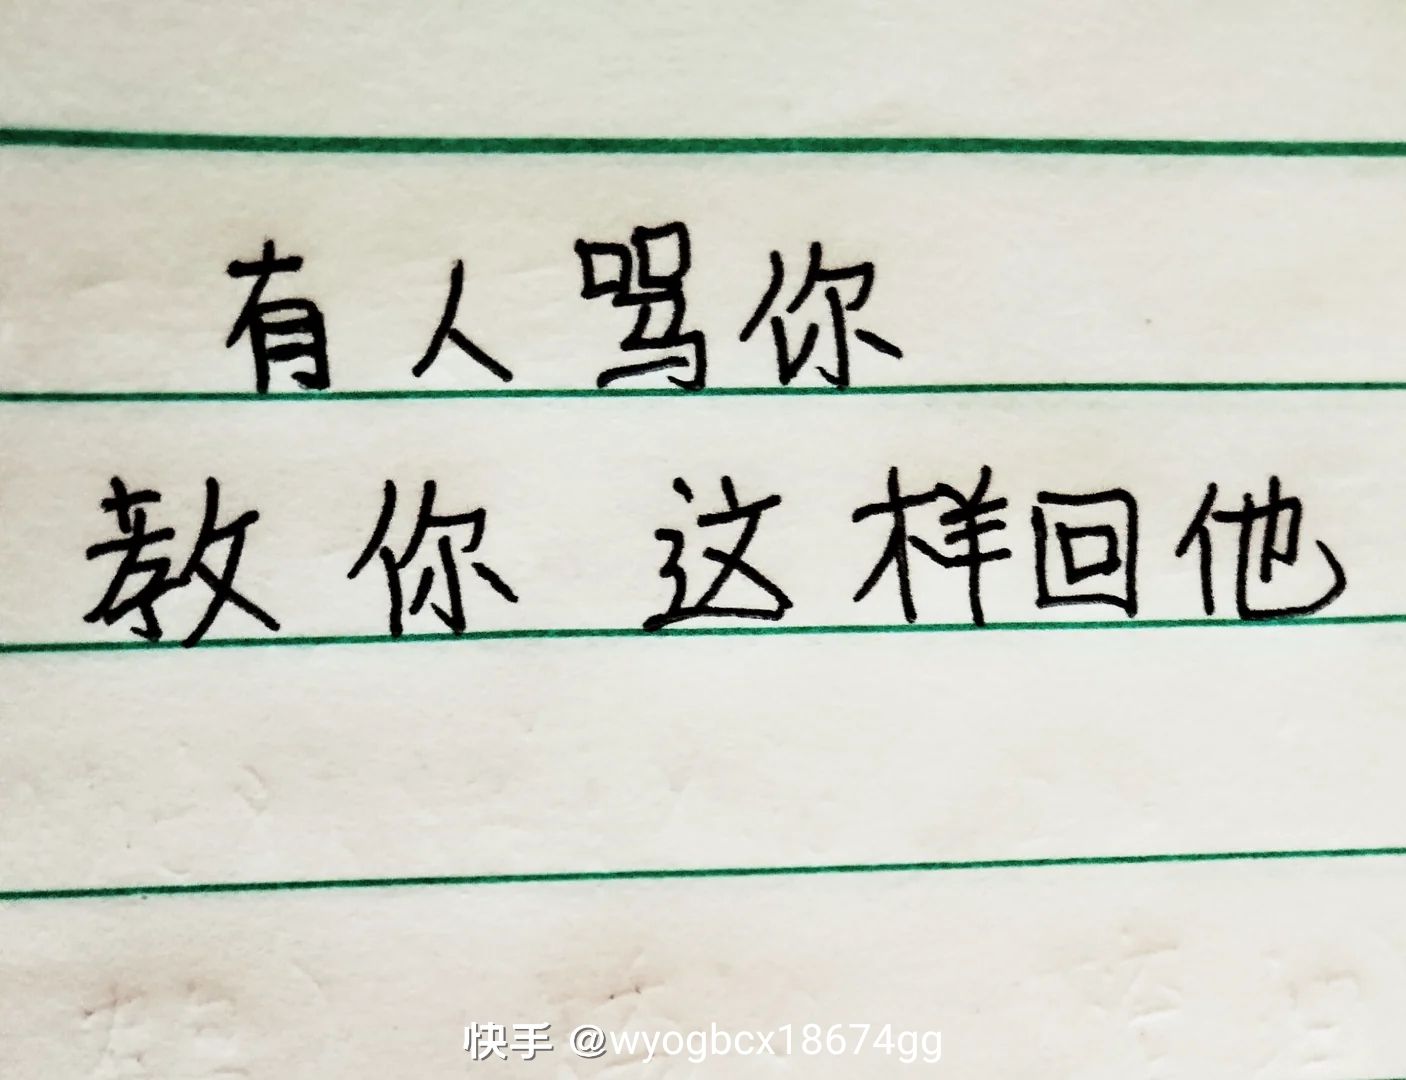 有人骂你
教你 这样回他
快手 @wyogbcx18674gg